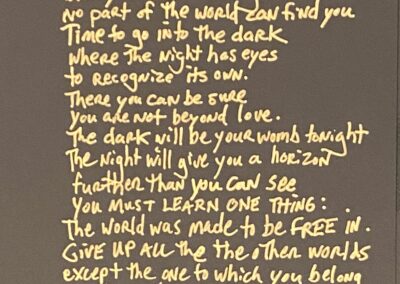 No part of the world can find you
Time to go into the dark
where the night has eyes
to recognize its own.
There you can be sure
you are not beyond love.
The dark will be your womb tonight
The night will give you a horizon
further than you can see
you MUST LEARN ONE THING:
The world was made to be FREE IN.
GIVE UP ALL the the other worlds
except the one to which you belong